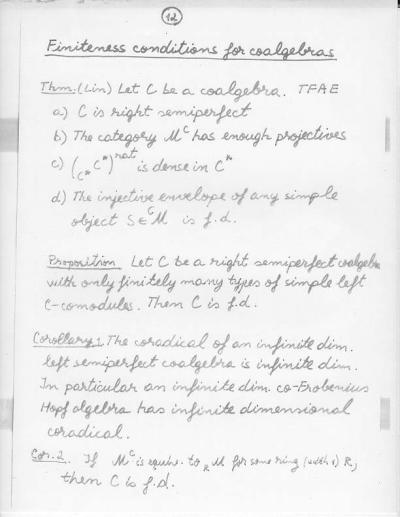 12
Finiteness conditions for coalgebras
Thm. (Lin) Let C be a coalgebra. TFAE
a) C is right semiperfect
b) The category M^C has enough projectives
c) (_{C*}C*)^{rat} is dense in C*
d) The injective envelope of any simple
object S ∈ ^C M is f.d.
Proposition Let C be a right semiperfect coalgebra
with only finitely many types of simple left
C-comodules. Then C is f.d.
Corollary 1 The coradical of an infinite dim.
left semiperfect coalgebra is infinite dim.
In particular an infinite dim. co-Frobenius
Hopf algebra has infinite dimensional
coradical.
Cor. 2. If M^C is equiv. to _R M for some ring (with 1) R,
then C is f.d.